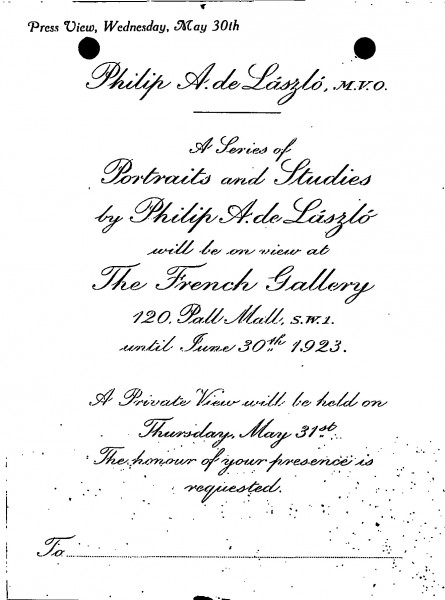 Press View, Wednesday, May 30th
Philip A. de László, M.V.O.
A Series of
Portraits and Studies
by Philip A. de László
will be on view at
The French Gallery
120, Pall Mall, S.W.1.
until June 30th 1923.
A Private View will be held on
Thursday, May 31st
The honour of your presence is
requested.
To